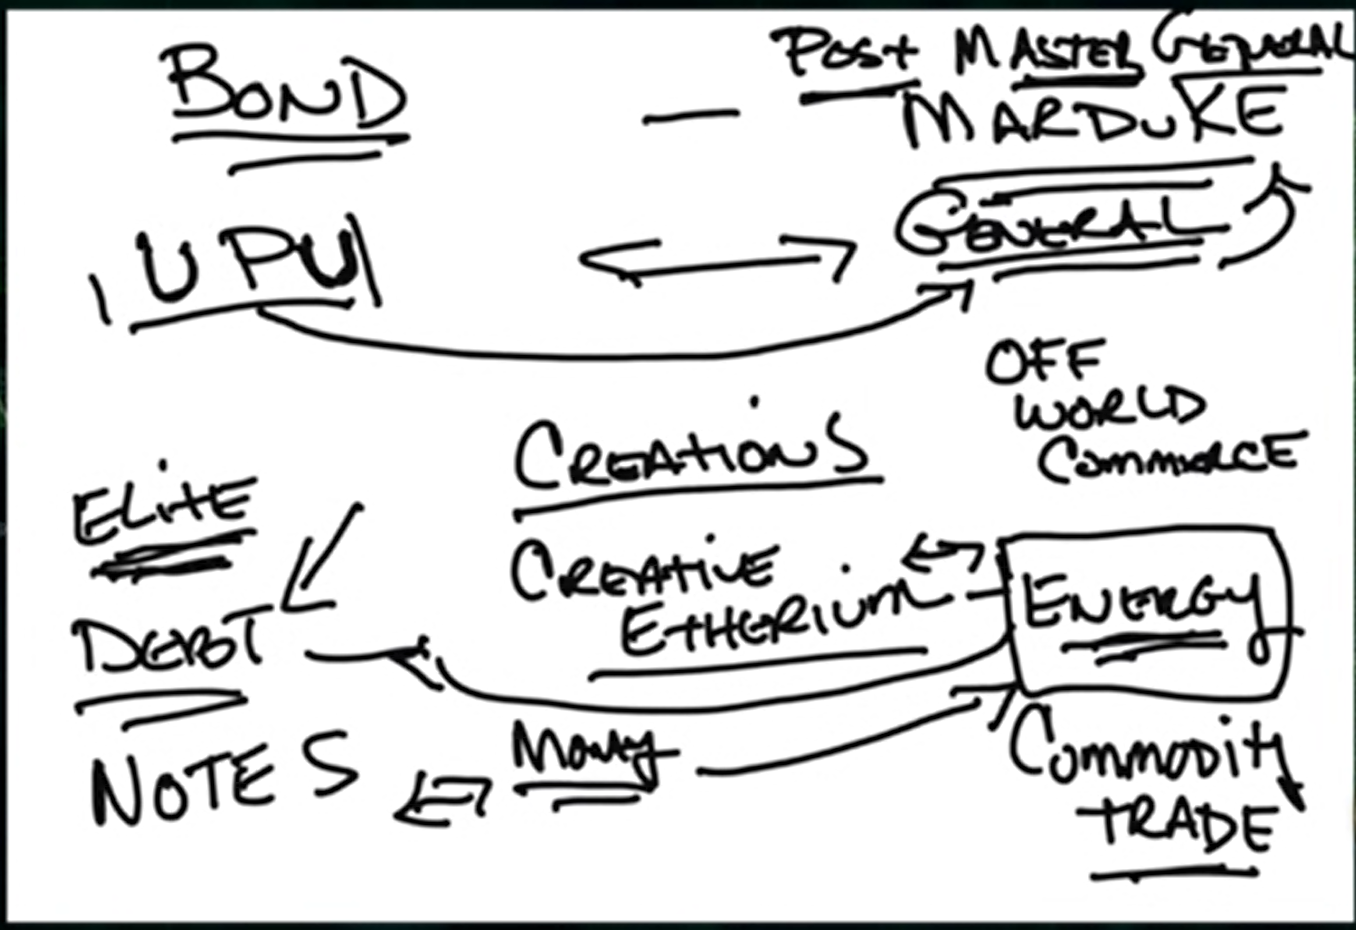 BOND
POST MASTER GENERAL
MARDUKE
GENERAL
UPU
OFF
WORLD
COMMERCE
CREATIONS
ELITE
CREATIVE
ETHERIUM
ENERGY
DEBT
MONEY
NOTES
COMMODITY
TRADE